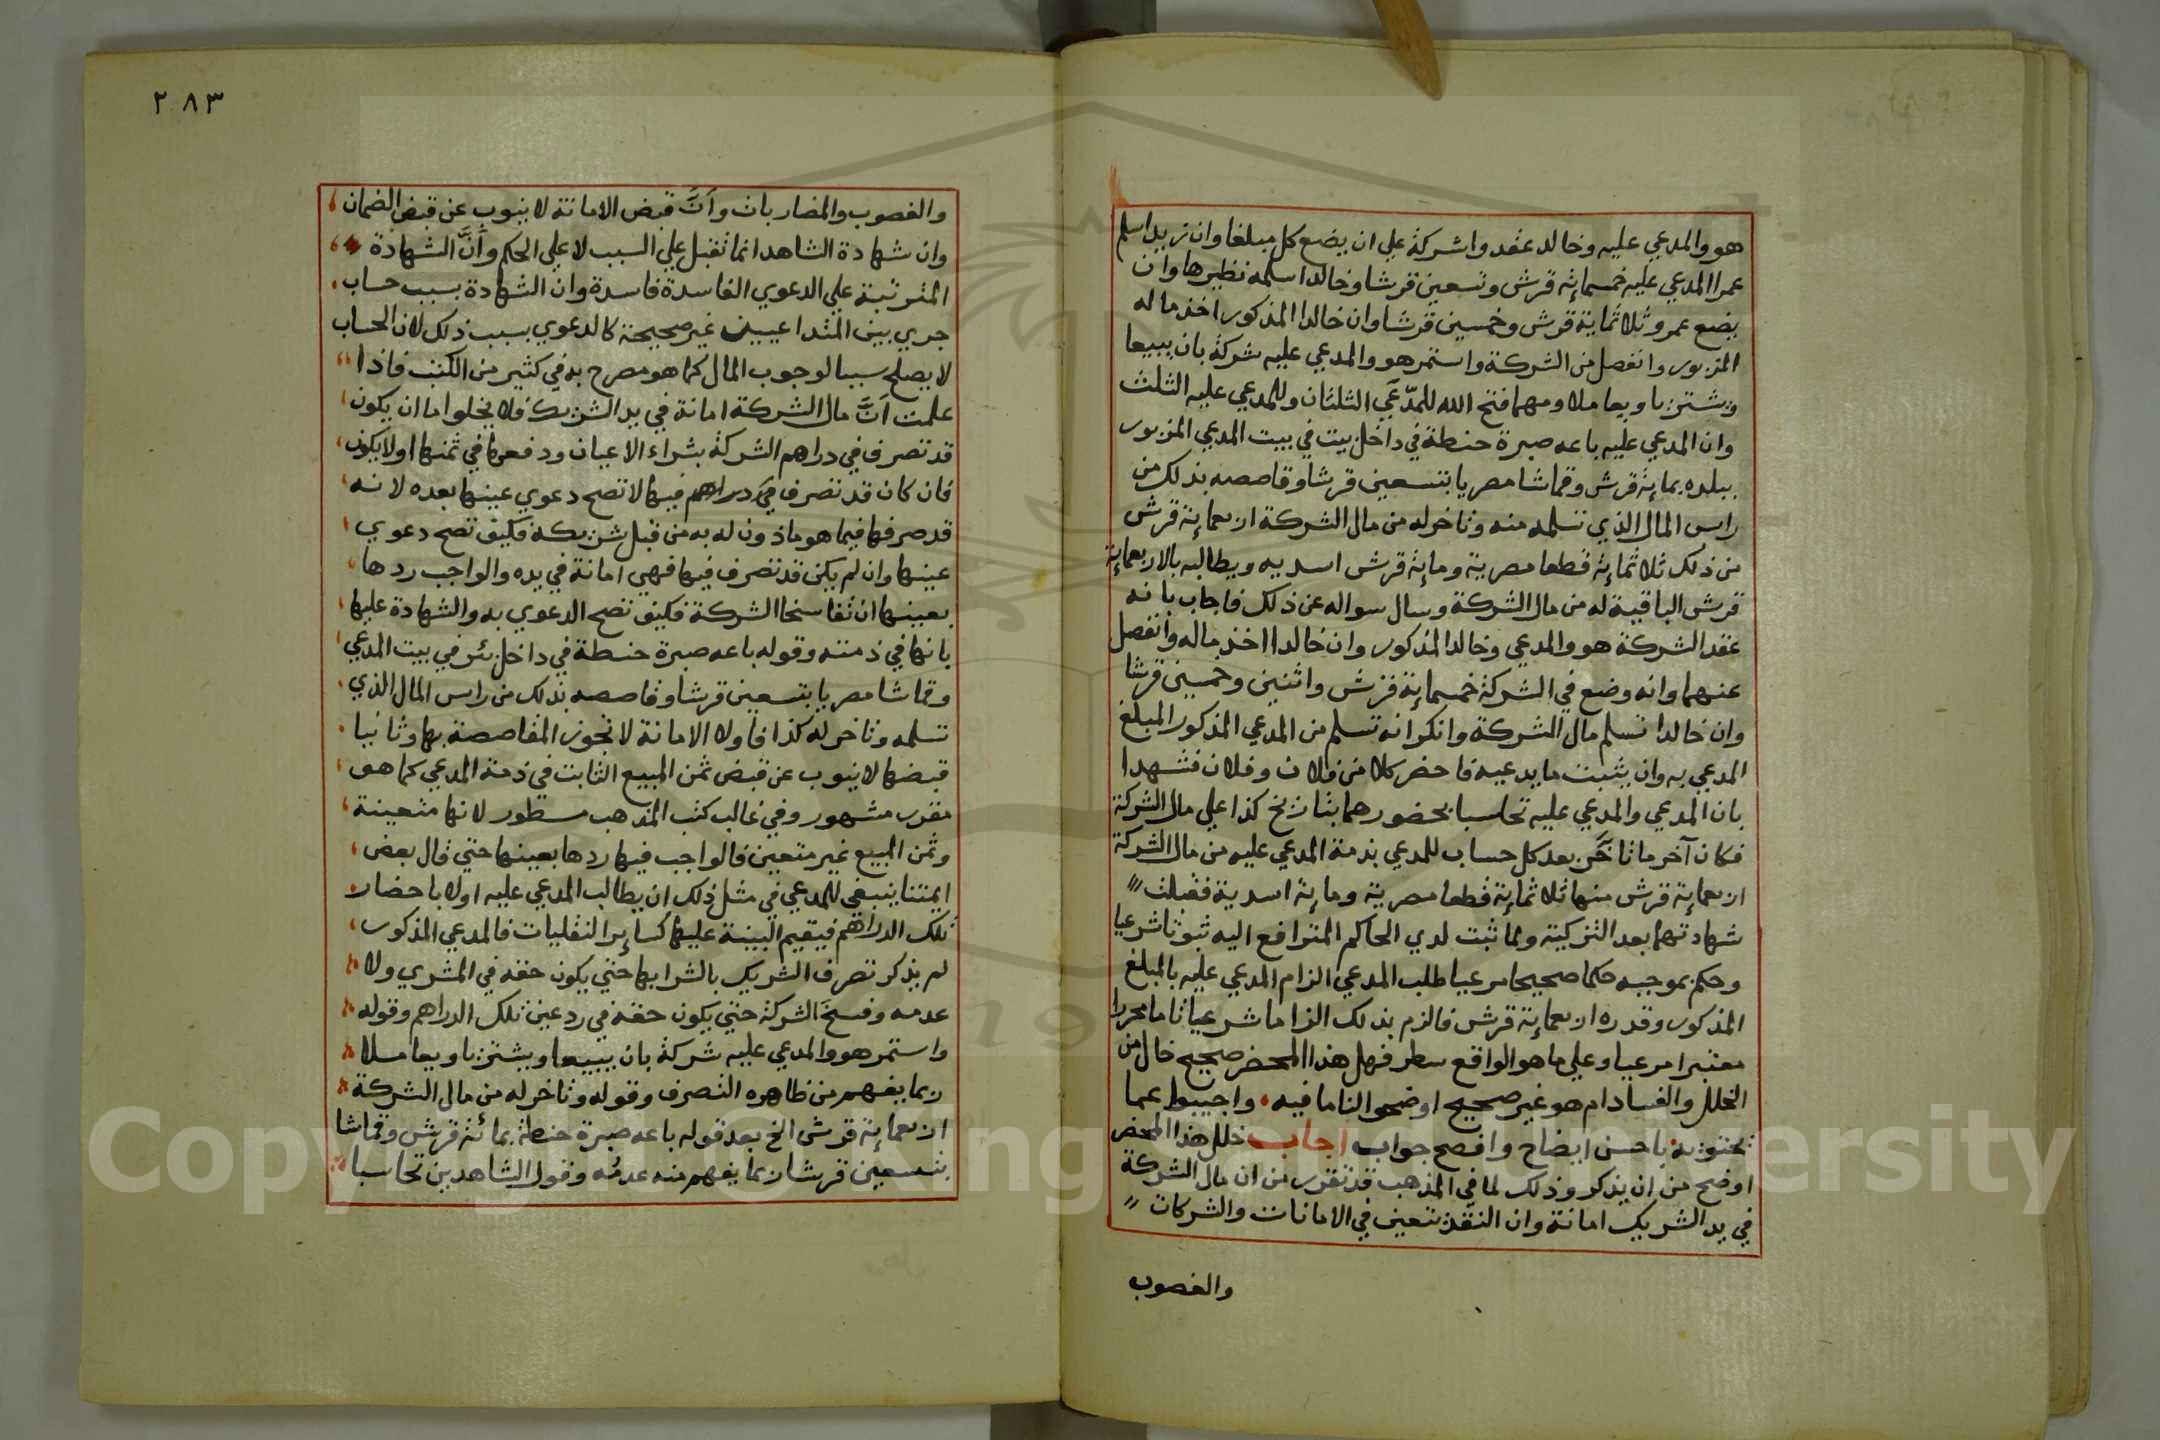 هو والمدعي عليه وخالد عقدوا شركة علي ان يضع كل مبلغا وان زيدا سلم
عمرا المدعي عليه خمسمائة قرش وتسعين قرشا وخالدا سلمه نظيرها وان
يضع عمرو ثلاثماية قرش وخمسين قرشا وان خالدا المذكور اخذ ماله
المزبور وانفصل من الشركة واستمر هو والمدعي عليه شركة بان يبيعا
ويشتريا ويعاملا ومهما فتح الله للمدّعَي الثلثان وللمدعي عليه الثلث
وان المدعي عليه باعه صبرة حنطة في داخل بيت في بيت المدعي المزبور
ببلده بمائة قرش وقماشا مصريا بتسعين قرشا وقاصصه بذلك من
راس المال الذي تسلمه منه وتاخر له من مال الشركة اربعماية قرش
من ذلك ثلاثمائة قطعا مصرية ومائة قرش اسدية ويطالبه بالاربعمائة
قرش الباقية له من مال الشركة وسال سواله عن ذلك فاجاب بانه
عقد الشركة هو والمدعي وخالد المذكور وان خالدا اخذ ماله وانفصل
عنهما وانه وضع في الشركة خمسماية قرش واثنين وخمسين قرشا
وان خالدا تسلم مال الشركة وانكر انه تسلم من المدعي المذكور المبلغ
المدعي به وان يثبت ما يدعيه فاحضر كلا من فلان وفلان فشهدا
بان المدعي والمدعي عليه تحاسبا بحضورهما بتاريخ كذا علي مال الشركة
فكان آخر ما تاخَّر بعد كل حساب للمدعي بذمة المدعي عليه من مال الشركة
اربعماية قرش منها ثلاثماية قطعا مصرية وماية اسدية فقبلت
شهادتهما بعد التزكية ولما ثبت لدي الحاكم المترافع اليه ثبوتا شرعيا
وحكم بموجبه حكما صحيحا مرعيا طلب المدعي الزام المدعي عليه بالمبلغ
المذكور وقدره اربعماية قرش فالزم بذلك الزاما شرعيا تاما محررا
معتبرا مرعيا وعلي ما هو الواقع سطر فهل هذا المحضر صحيح خال من
الخلل والفساد ام هو غير صحيح اوضحوا لنا ما فيه • واجيبوا عما
يحتويه باحسن ايضاح وافصح جواب اجاب خلل هذا المحضر
اوضح من ان يذكر وذلك لما في المذهب قد تقرر من ان مال الشركة
في يد الشريك امانة وان النقد يتعين في الامانات والشركات
والغصوب
٢٨٣
والغصوب والمضاربات واَنَّ قبض الامانة لا ينوب عن قبض الضمان
وان شهادة الشاهد انما تقبل علي السبب لا علي الحكم واَنَّ الشهادة
المترتبة علي الدعوي الفاسدة فاسدة وان الشهادة بسبب حساب
جري بين المتداعيين غير صحيحة كالدعوي بسبب ذلك لان الحساب
لا يصلح سببا لوجوب المال كما هو مصرح به في كثير من الكتب فاذا
علمت اَنَّ مال الشركة امانة في يد الشريك فلا يخلوا اما ان يكون
قد تصرف في دراهم الشركة بشراء الاعيان ودفعها في ثمنها اولا يكون
فان كان قد تصرف في دراهم فيها لا تصح دعوي عينها بعده لانه
قد صرفها فيما هو ماذون له به من قبل شريكه فكيف تصح دعوي
عينها وان لم يكن قد تصرف فيها فهي امانة في يده والواجب ردها
بعينها ان تفاسخا الشركة فكيف تصح الدعوي به والشهادة عليها
بانها في ذمته وقوله باعه صبرة حنطة في داخل بئر في بيت المدعي
وقماشا مصريا بتسعين قرشا وقاصصه بذلك من راس المال الذي
تسلمه وتاخر له كذا فاولا الامانة لا تجوز المقاصصة بها وثانيا
قبضها لا ينوب عن قبض ثمن المبيع الثابت في ذمة المدعي كما هو
مقرر مشهور وفي غالب كتب المذهب مسطور لانها متعينة
وثمن المبيع غير متعين فالواجب فيها ردها بعينها حتي قال بعض
ايمتنا ينبغي للمدعي في مثل ذلك ان يطالب المدعي عليه اولا باحضار
تلك الدراهم فيقيم البينة عليها كسائر النقليات فالمدعي المذكور
لم يذكر تصرف الشريك بالشرا بها حتي يكون حقه في المشري ولا
عدمه وفسخَ الشركة حتي يكون حقه في رد عين تلك الدراهم وقوله
واستمر هو والمدعي عليه شركة بان يبيعا ويشتريا ويعاملا
ربما يفهم من ظاهره التصرف وقوله وتاخر له من مال الشركة
اربعماية قرش الخ بعد قوله باعه صبرة حنطة بمائة قرش وقماشا
بتسعين قرشا ربما يفهم منه عدمُه وقول الشاهدين تحاسبا
Copyright © King Saud University